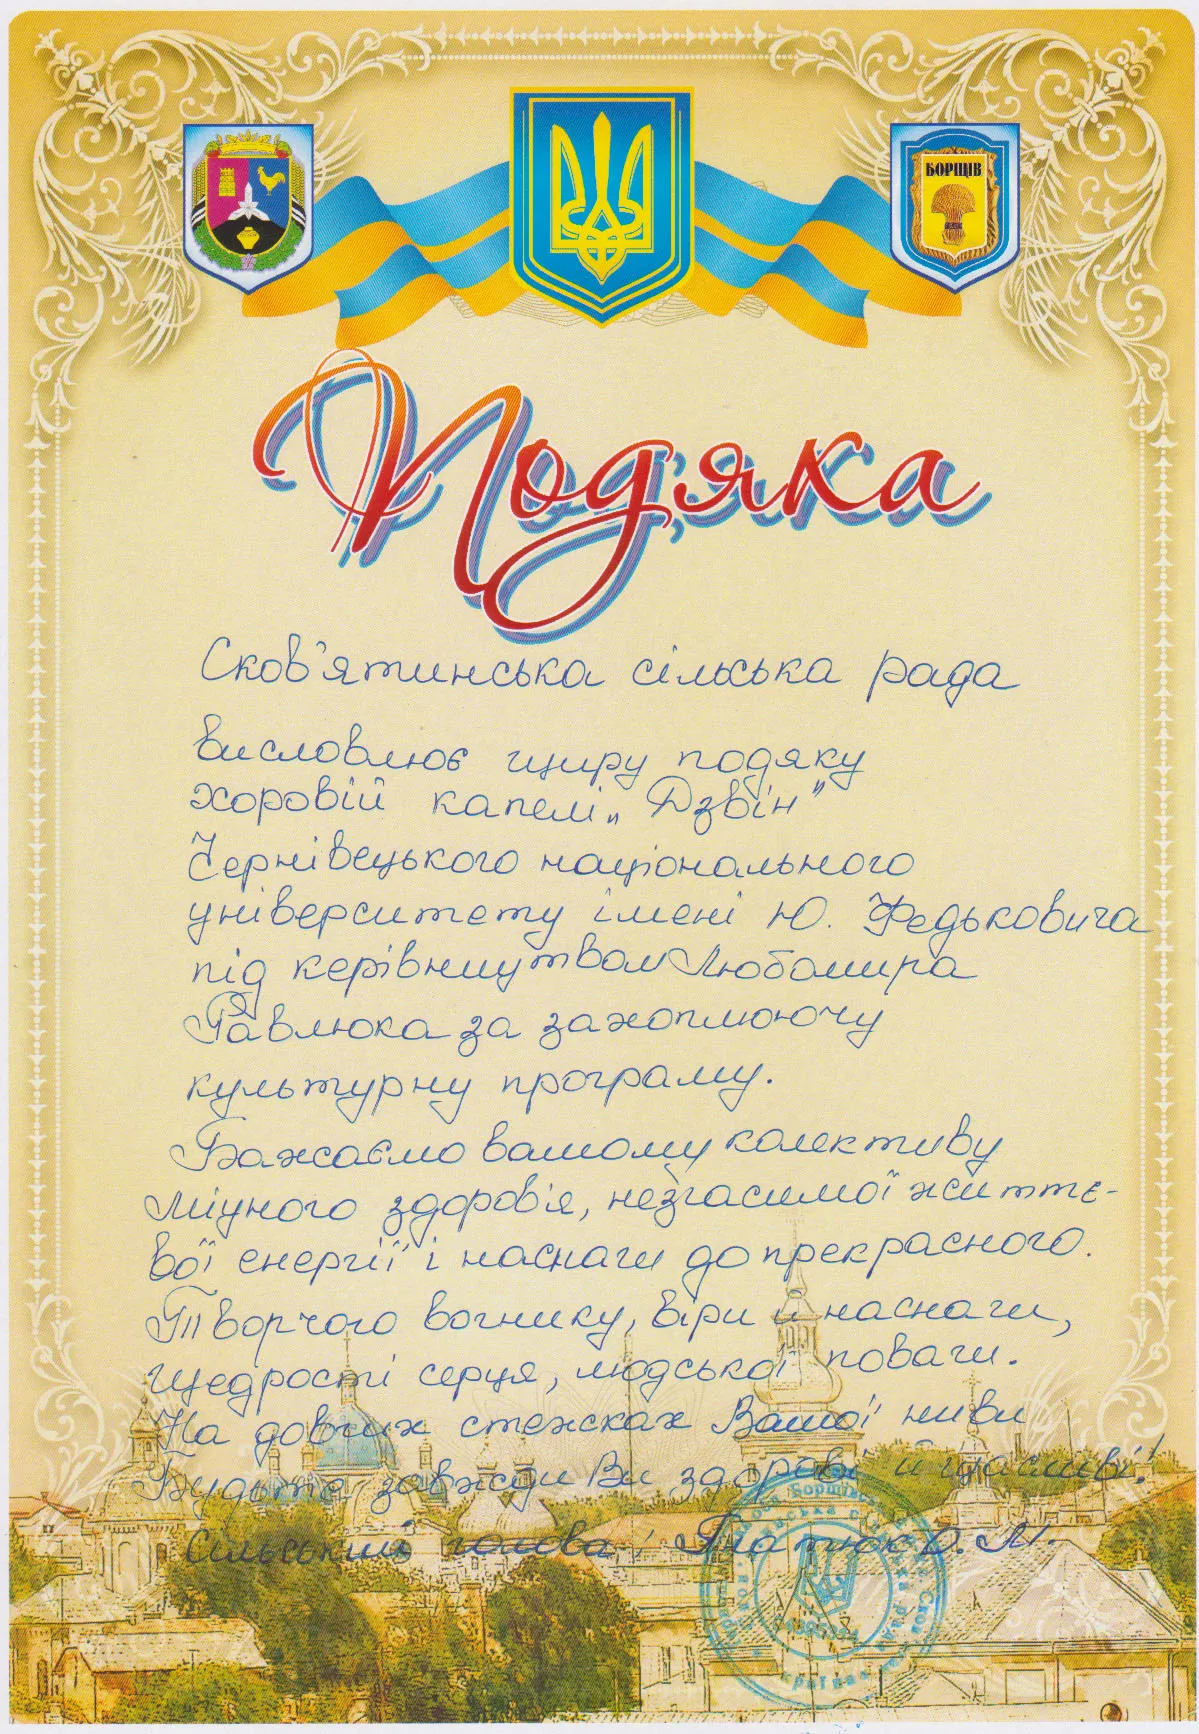 БОРЩІВ
Подяка
Сков'ятинська сільська рада
висловлює щиру подяку
хоровій капелі „Дзвін"
Чернівецького національного
університету імені Ю. Федьковича
під керівництвом Любомира
за захоплюючу
культурну програму.
Бажаємо вашому колективу
міцного здоров'я, незгасимої життє-
вої енергії і наснаги до прекрасного.
Творчого вогнику, віри й наснаги,
щедрості серця, людської поваги.
На довгих стежках Вашої ниви
Будьте завжди Ви здорові й щасливі!
Сільський голова О. М.